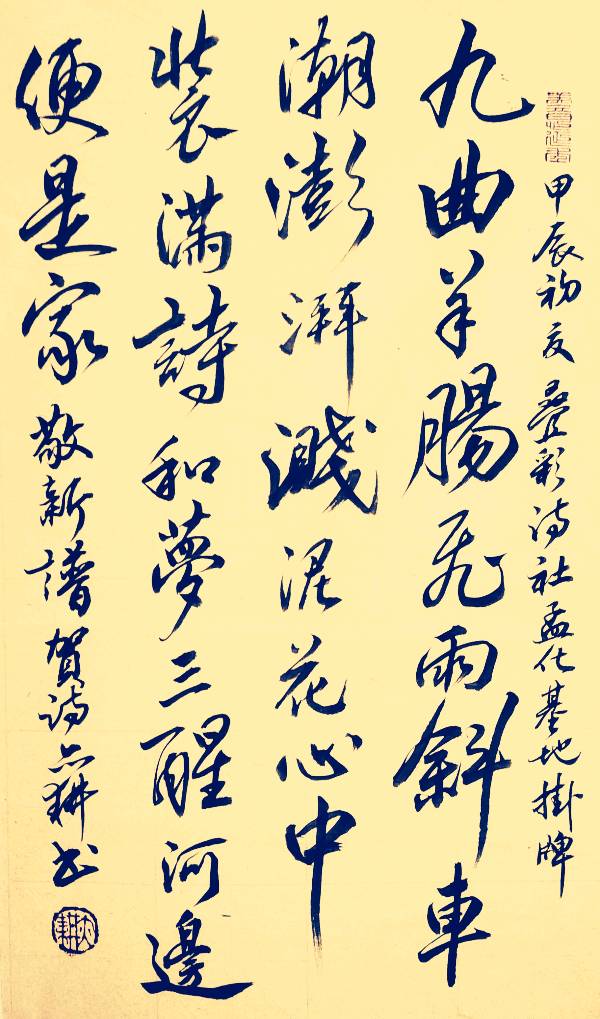 甲辰初夏疊彩诗社孟化基地掛牌
九曲羊腸飞雨斜車
潮澎湃濺泥花心中
裝滿詩和夢三醒河邊
便是家敬新譜賀诗耕书